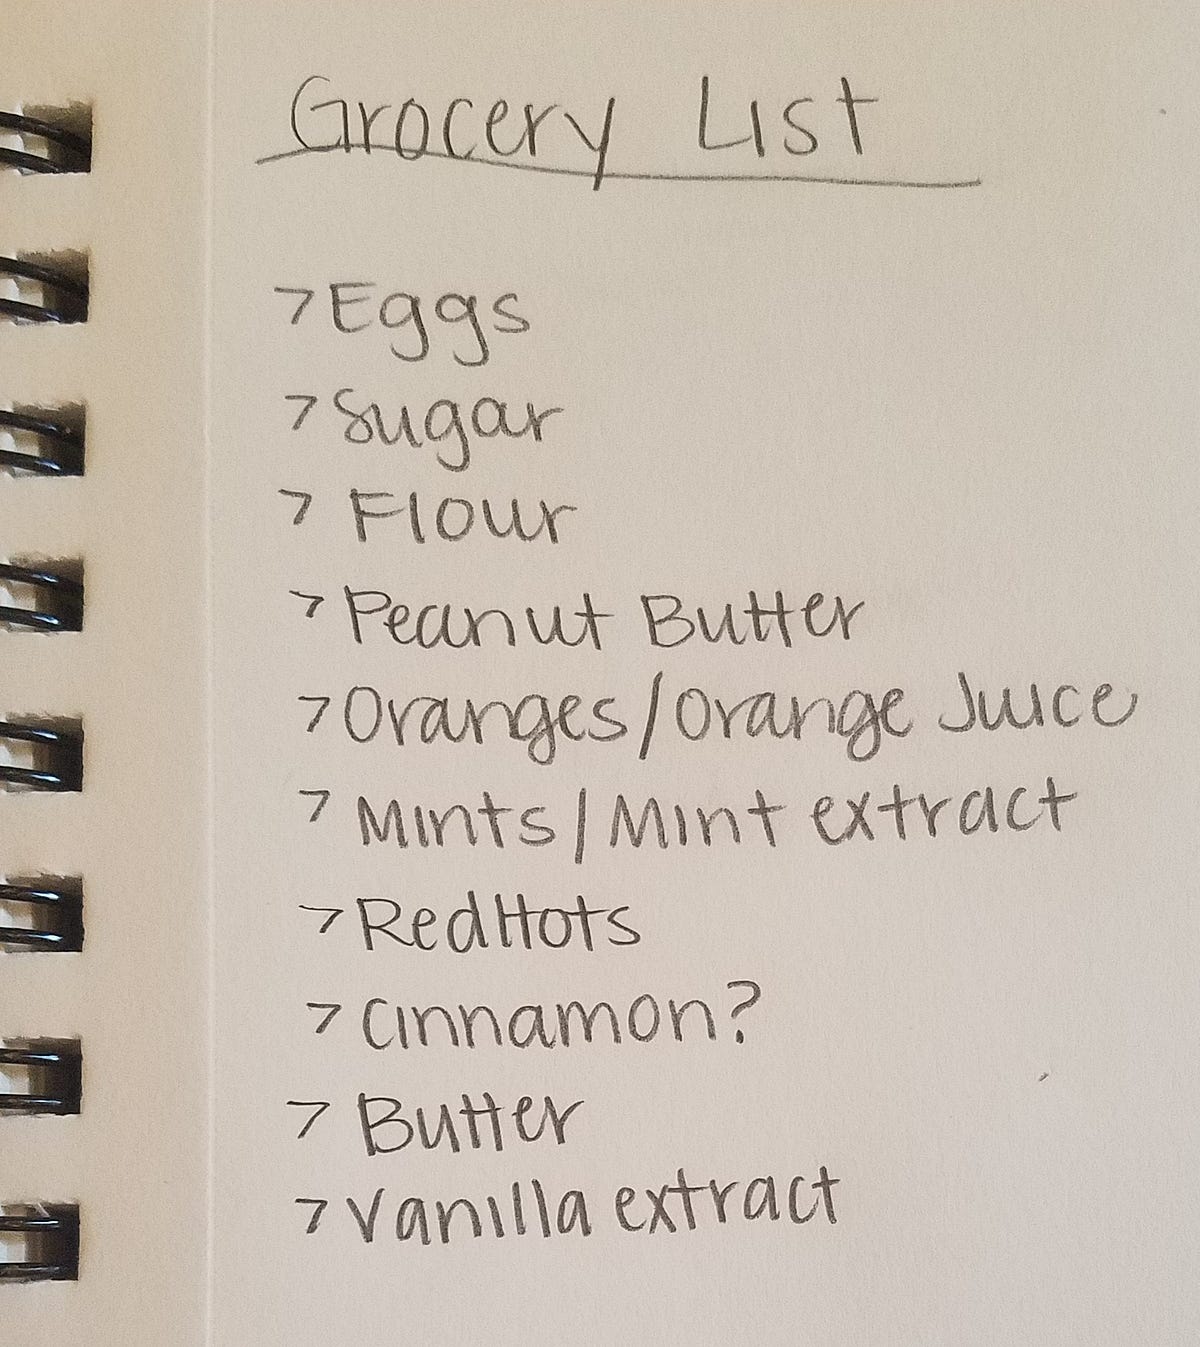 Grocery List
> Eggs
> Sugar
> Flour
> Peanut Butter
> Oranges/Orange Juice
> Mints/Mint extract
> RedHots
> Cinnamon?
> Butter
> Vanilla extract